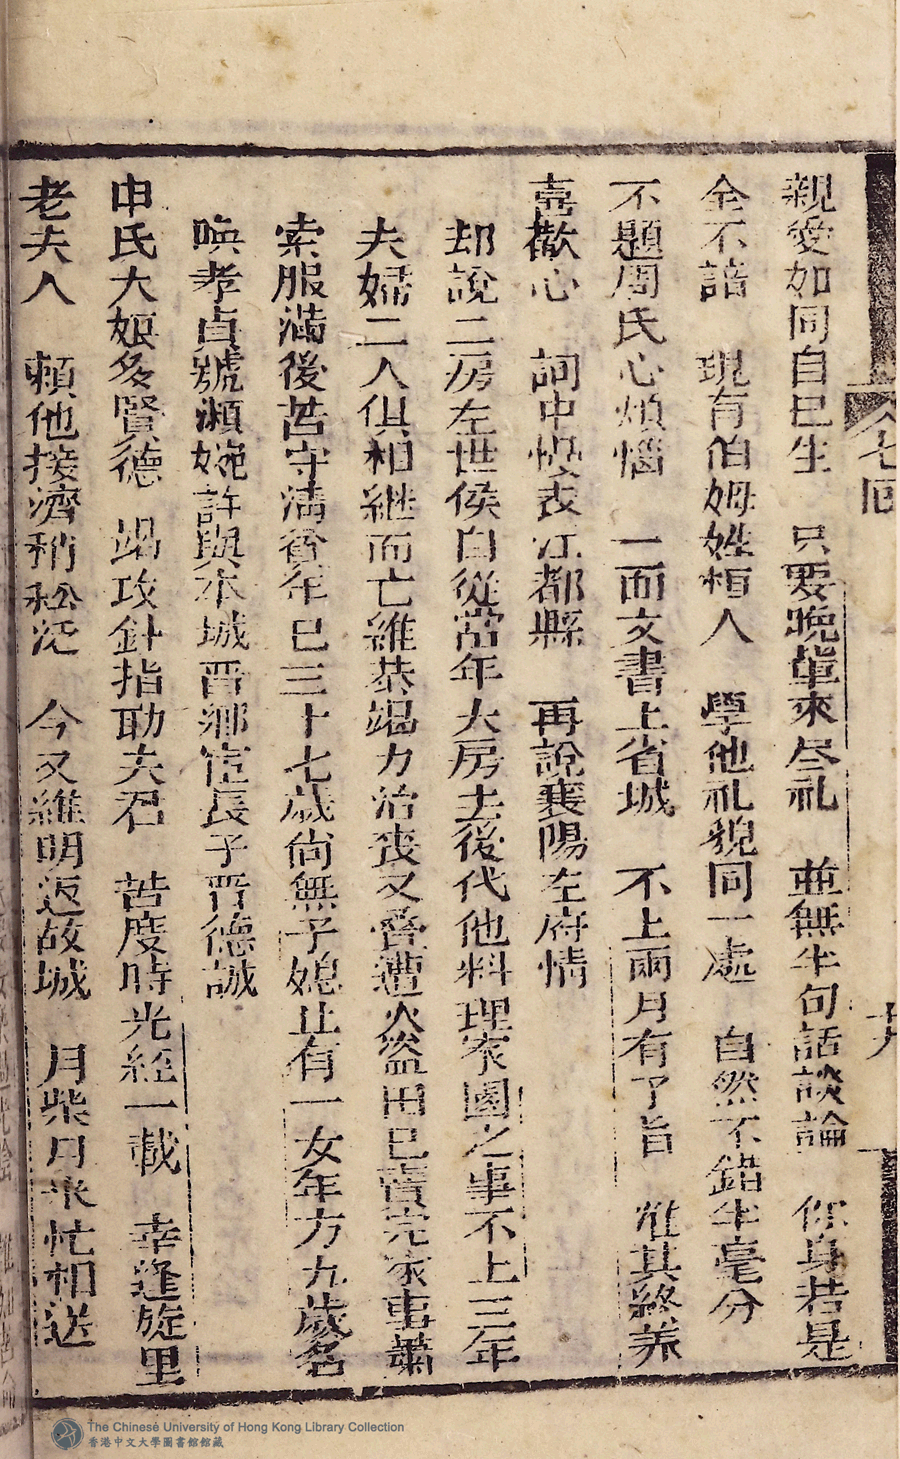 親愛如同自巳生　只要晚輩來尽礼　並無半句話談論　你身若是
全不諳　現有伯姆姓桓人　學他礼貌同一處　自然不錯半毫分
不題周氏心煩惱　一面文書上省城　不上兩月有了旨　准其終养
喜歡心　詞中慢表江都縣　再說襄陽左府情
却說二房左世侯自從當年大房去後代他料理家園之事不上三年
夫婦二人俱相継而亡維恭竭力治丧又疊遭火盗田已賣完家事蕭
索服滿後苦守清貧年已三十七歲尚無子媳止有一女年方九歲名
喚孝貞號瀕婉許與本城晋鄉宦長子晋德誠
申氏大娘多賢德　竭攻針指助夫君　苦度時光經一載　幸逢旋里
老夫人　頼他接濟稍松泛　今又維明返故城　月柴日米忙相送
七囘
The Chinese University of Hong Kong Library Collection
香港中文大學圖書館館藏